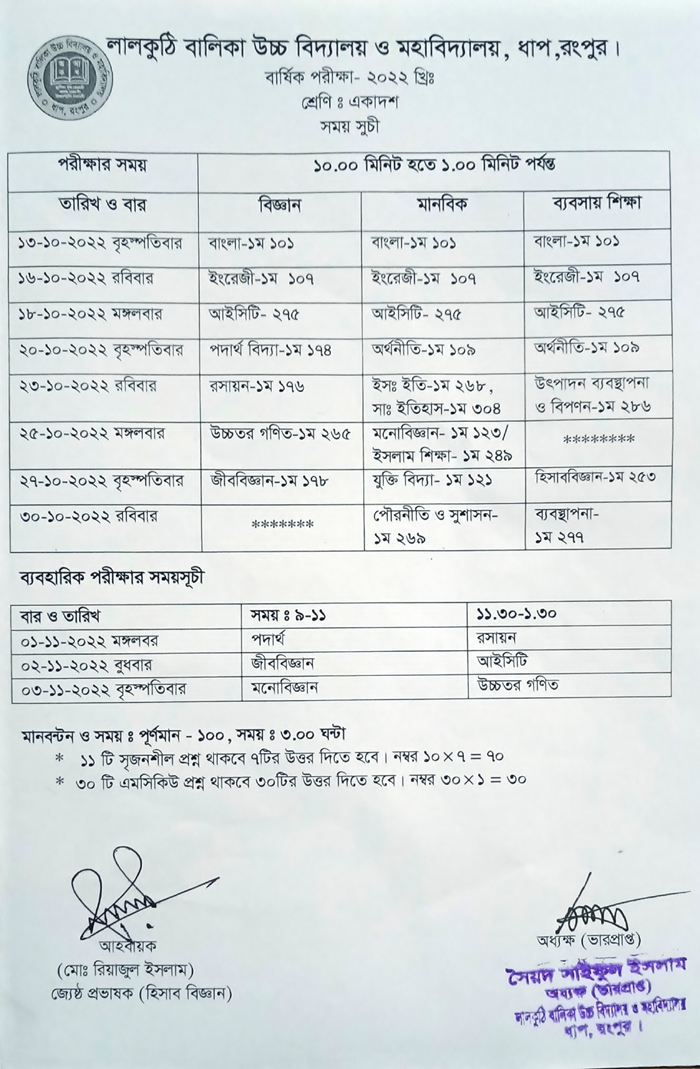 লালকুঠি বালিকা উচ্চ বিদ্যালয় ও মহাবিদ্যালয়, ধাপ,রংপুর।
বার্ষিক পরীক্ষা- ২০২২ খ্রিঃ
শ্রেণি ঃ একাদশ
সময় সূচী
পরীক্ষার সময় ১০.০০ মিনিট হতে ১.০০ মিনিট পর্যন্ত
তারিখ ও বার বিজ্ঞান মানবিক ব্যবসায় শিক্ষা
১৩-১০-২০২২ বৃহস্পতিবার বাংলা-১ম ১০১ বাংলা-১ম ১০১ বাংলা-১ম ১০১
১৬-১০-২০২২ রবিবার ইংরেজী-১ম ১০৭ ইংরেজী-১ম ১০৭ ইংরেজী-১ম ১০৭
১৮-১০-২০২২ মঙ্গলবার আইসিটি- ২৭৫ আইসিটি- ২৭৫ আইসিটি- ২৭৫
২০-১০-২০২২ বৃহস্পতিবার পদার্থ বিদ্যা-১ম ১৭৪ অর্থনীতি-১ম ১০৯ অর্থনীতি-১ম ১০৯
২৩-১০-২০২২ রবিবার রসায়ন-১ম ১৭৬ ইসঃ ইতি-১ম ২৬৮, উৎপাদন ব্যবস্থাপনা
সাঃ ইতিহাস-১ম ৩০৪ ও বিপণন-১ম ২৮৬
২৫-১০-২০২২ মঙ্গলবার উচ্চতর গণিত-১ম ২৬৫ মনোবিজ্ঞান- ১ম ১২৩/ ********
ইসলাম শিক্ষা- ১ম ২৪৯
২৭-১০-২০২২ বৃহস্পতিবার জীববিজ্ঞান-১ম ১৭৮ যুক্তি বিদ্যা- ১ম ১২১ হিসাববিজ্ঞান-১ম ২৫৩
৩০-১০-২০২২ রবিবার ******* পৌরনীতি ও সুশাসন- ব্যবস্থাপনা-
১ম ২৬৯ ১ম ২৭৭
ব্যবহারিক পরীক্ষার সময়সূচী
বার ও তারিখ সময় ঃ ৯-১১ ১১.৩০-১.৩০
০১-১১-২০২২ মঙ্গলবর পদার্থ রসায়ন
০২-১১-২০২২ বুধবার জীববিজ্ঞান আইসিটি
০৩-১১-২০২২ বৃহস্পতিবার মনোবিজ্ঞান উচ্চতর গণিত
মানবন্টন ও সময় ঃ পূর্ণমান - ১০০, সময় ঃ ৩.০০ ঘন্টা
* ১১ টি সৃজনশীল প্রশ্ন থাকবে ৭টির উত্তর দিতে হবে। নম্বর ১০×৭ = ৭০
* ৩০ টি এমসিকিউ প্রশ্ন থাকবে ৩০টির উত্তর দিতে হবে। নম্বর ৩০×১ = ৩০
আহবায়ক
(মোঃ রিয়াজুল ইসলাম)
জ্যেষ্ঠ প্রভাষক (হিসাব বিজ্ঞান)
অধ্যক্ষ (ভারপ্রাপ্ত)
সৈয়দ সাইফুল ইসলাম
অধ্যক্ষ (ভারপ্রাপ্ত)
লালকুঠি বালিকা উচ্চ বিদ্যালয় ও মহাবিদ্যালয়
ধাপ, রংপুর।